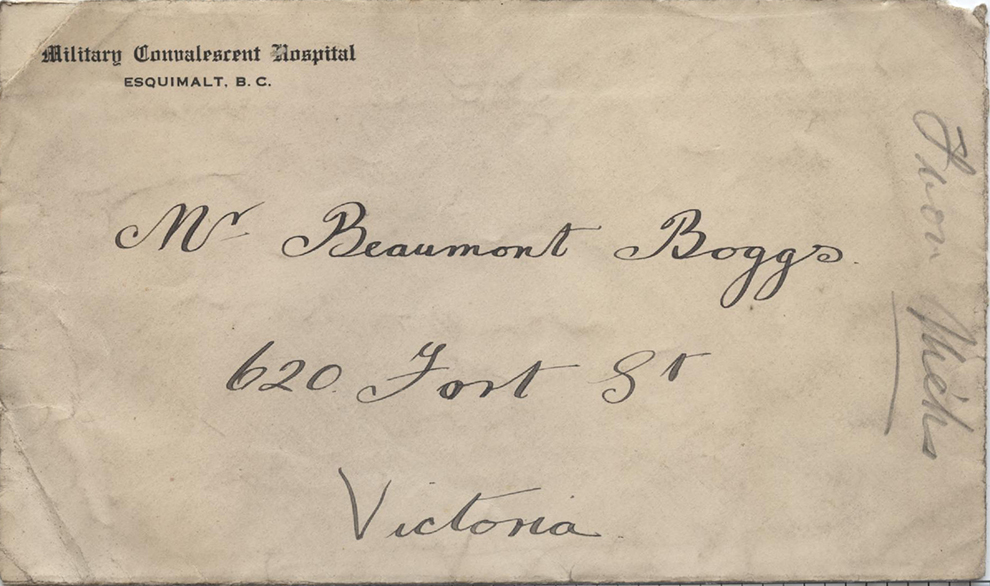 Military Convalescent Hospital
ESQUIMALT, B. C.
Mr Beaumont Boggs.
620 Fort St
Victoria
From